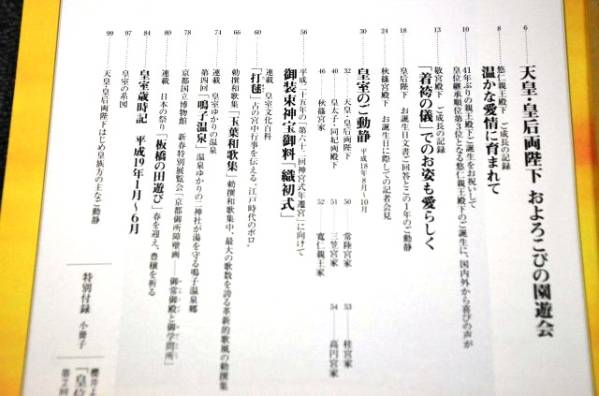 6 天皇・皇后両陛下 およろこびの園遊会
8 悠仁親王殿下 ご成長の記録
温かな愛情に育まれて
10 41年ぶりの親王殿下ご誕生をお祝いして
皇位継承順位第3位となる悠仁親王殿下のご誕生に、国内外から喜びの声が
13 敬宮殿下 ご成長の記録
「着袴の儀」でのお姿も愛らしく
18 皇后陛下 お誕生日文書ご回答とこの1年のご動静
24 秋篠宮殿下 お誕生日に際しての記者会見
30 皇室のご動静 平成18年8月〜10月
32 天皇・皇后両陛下
40 皇太子・同妃両殿下
46 秋篠宮家
50 常陸宮家
51 三笠宮家
52 寬仁親王家
53 桂宮家
54 高円宮家
56 平成二十五年の「第六十二回神宮式年遷宮」に向けて
御装束神宝御料「織初式」
60 連載 皇室文化百科
「打毬」 古の宮中行事を伝える、江戸時代のポロ。
66 勅撰和歌集「玉葉和歌集」 勅撰和歌集中、最大の歌数を誇る革新的歌風の勅撰集
74 連載 皇室ゆかりの温泉
第四回「鳴子温泉」 温泉ゆかりの二神社が湯を守る鳴子温泉郷
78 京都国立博物館 新春特別展覧会「京都御所障壁画——御常御殿と御学問所」
80 連載 日本の祭り「板橋の田遊び」 春を迎え、豊穣を祈る
84 皇室歳時記 平成19年1月〜6月
97 皇室の系図
99 天皇・皇后両陛下はじめ皇族方の主なご動静
特別付録 小冊子
櫻井よ
「皇位
第2回